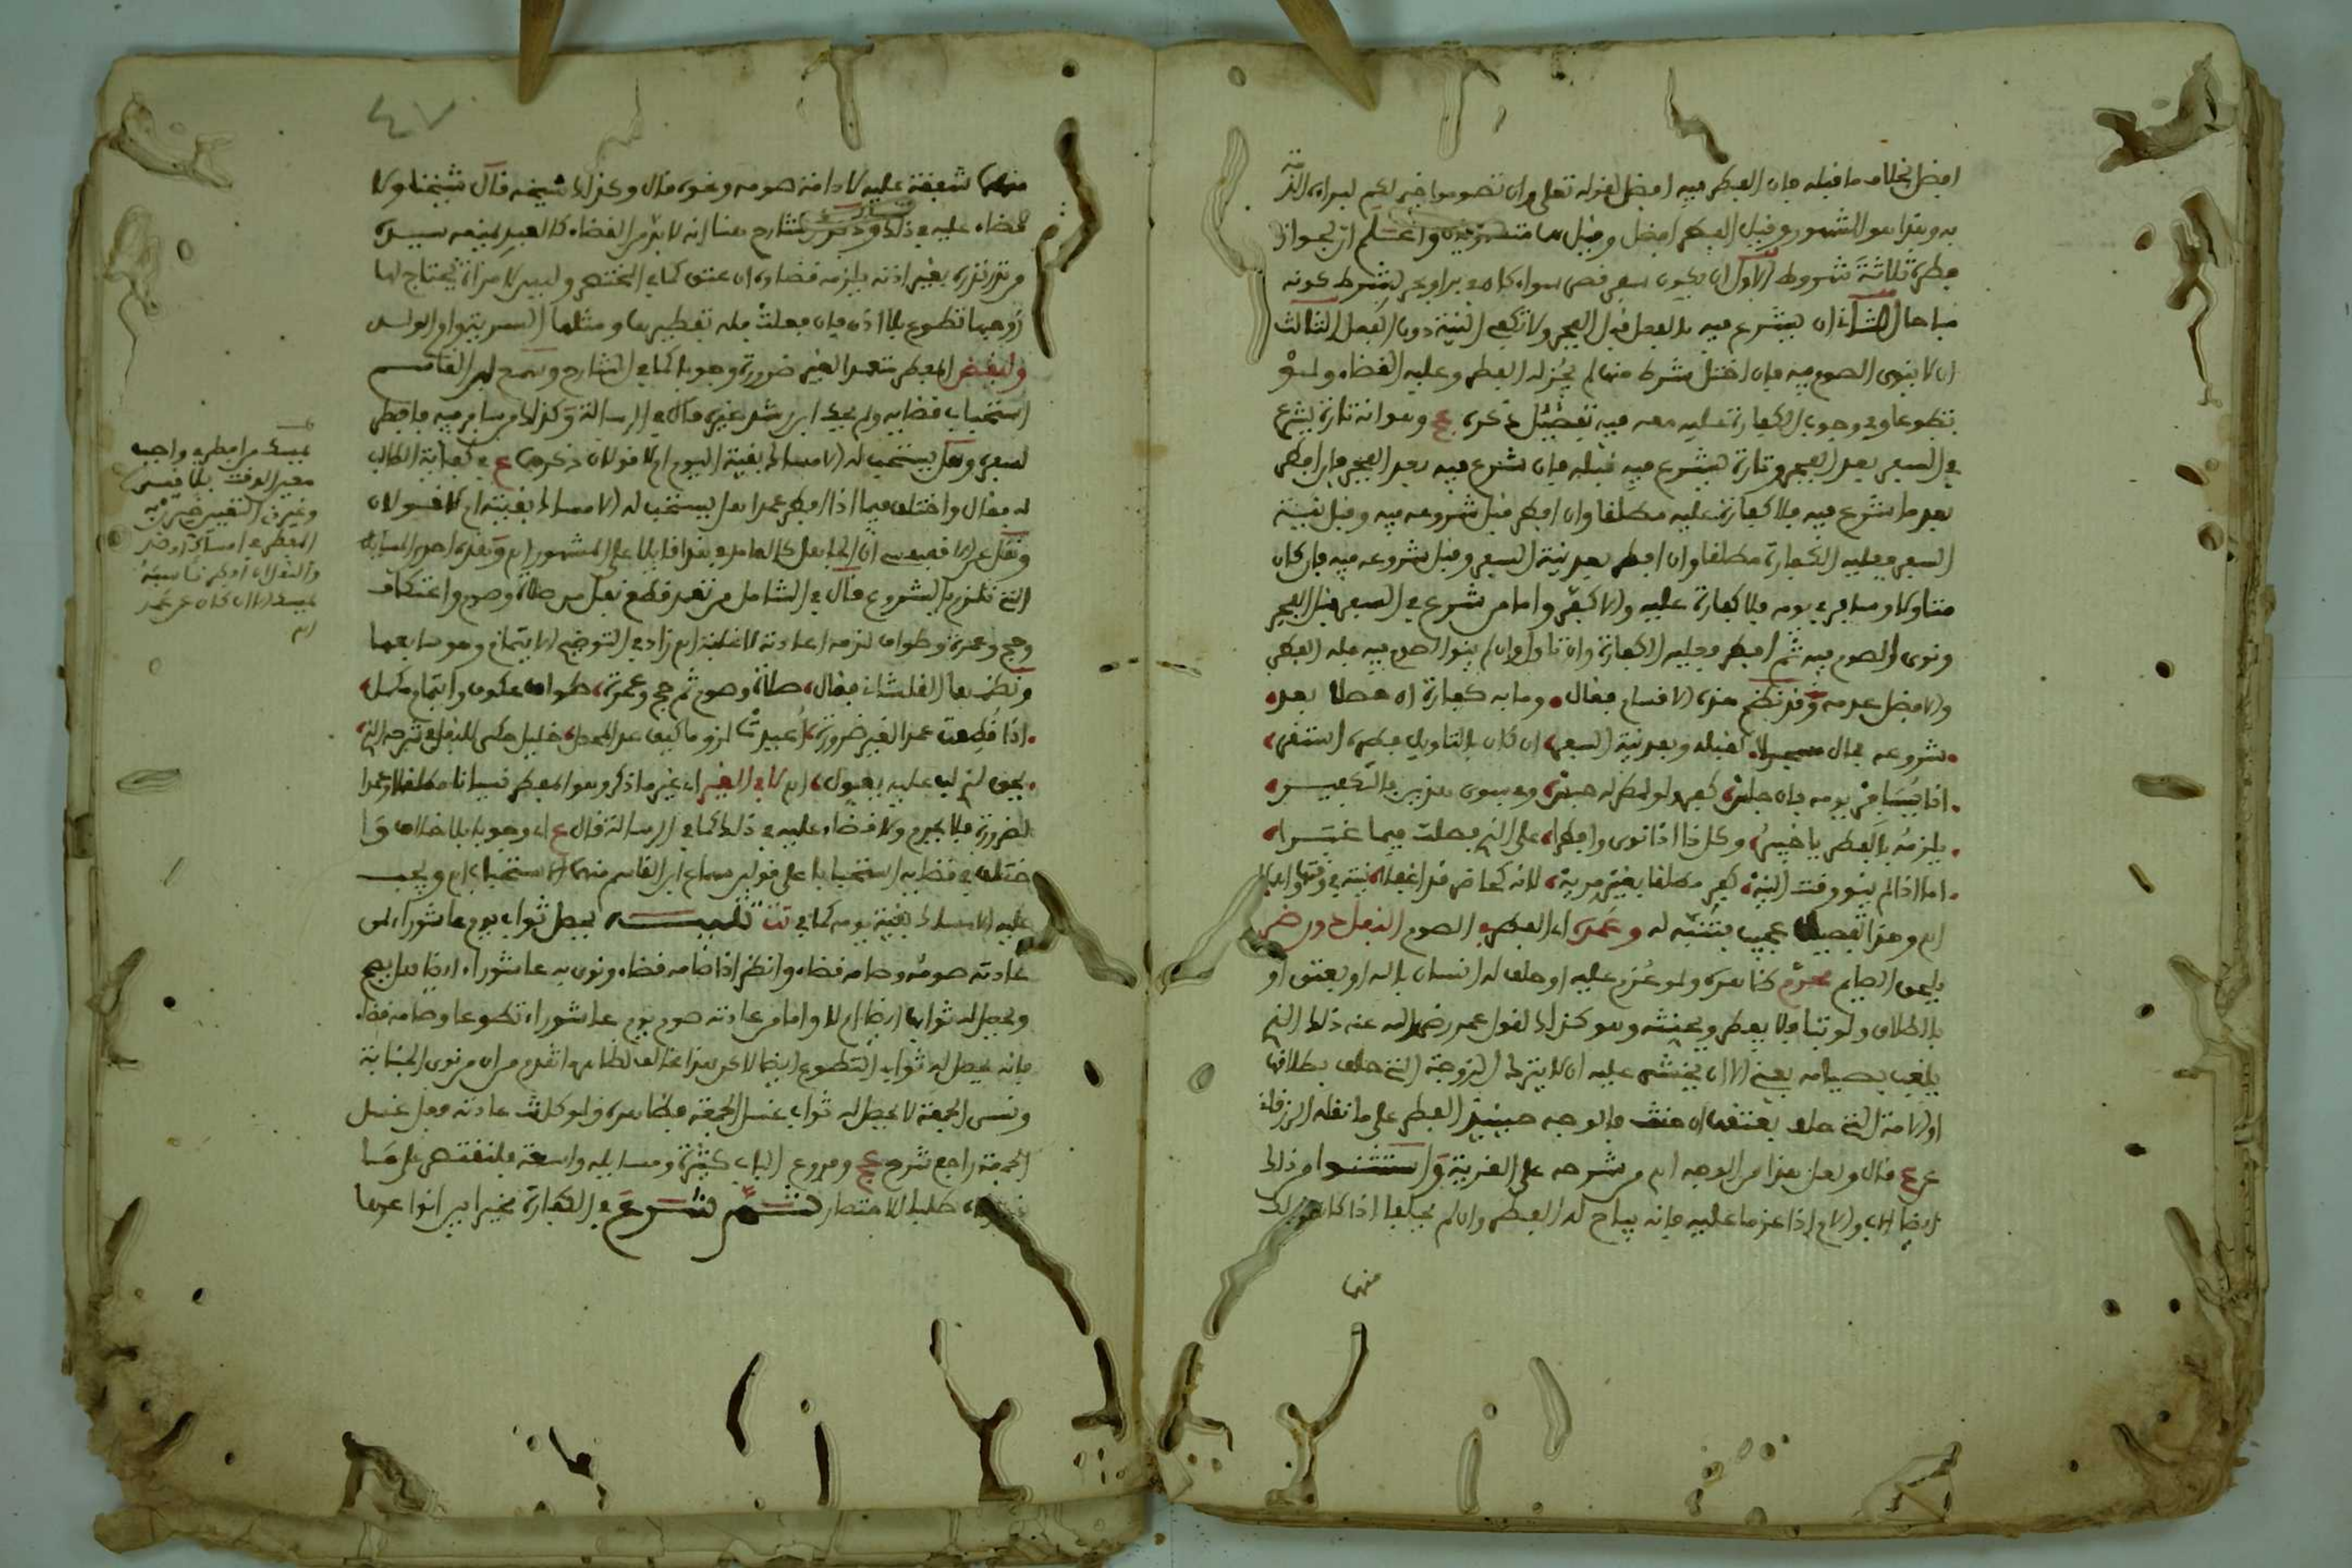 افضل بخلاف ما قبله فان الفطر فيه افضل لقوله تعلى وان تصوموا خير لكم لبراءة الذمة
به وهذا هو المشهور وقيل الفطر افضل وقيل هما متساويان واعلم ان لجواز
فطره ثلاثة شروط الاول ان يكون سفر قصر سواء كان في بر او بحر بشرط كونه
مباحا الثاني ان يشرع فيه بالفعل قبل الفجر ولا تكفي النية دون الفعل الثالث
ان لا ينوي الصوم فيه فان اختل شرط منها لم يجز له الفطر وعليه القضاء ولو
تطوعا وفي وجوب الكفارة عليه معه فيه تفصيل ذكره عج وهو انه تارة يشرع
في السفر بعد الفجر وتارة يشرع فيه قبله فان شرع فيه بعد الفجر فان افطر
بعد ما شرع فيه فلا كفارة عليه مطلقا وان افطر قبل شروعه فيه وقبل نية
السفر فعليه الكفارة مطلقا وان افطر بعد نية السفر وقبل شروعه فيه فان كان
متاولا وسافر في يومه فلا كفارة عليه والا كفر واما من شرع في السفر قبل الفجر
ونوى الصوم فيه ثم افطر فعليه الكفارة وان تاول وان لم ينو الصوم فيه فله الفطر
والافضل عدمه وقد نظم هذه الاقسام فقال وما به كفارة ان حصلا بعد
شروعه بحال لقبله وبعد نية السفر ان كان بالتاويل فطره استقر
اذا يسافر يومه فان جلس كفر ولو لفطر له وفي سوى هذين بالتكفير
يلزمه بالفطر يا خبير وكل ذا اذا نوى وافطرا على الذي فصلت فيما غبرا
اما اذا لم ينو وقت النية كفر مطلقا بغير مرية لانه كحاضر قد اغفلا نية في وقتها واهملا
اه وهذا تفصيل عجيب فتنبه له وعمده اي الفطر في الصوم النفل دون ضر
يلحق الصايم محرم كظاهره ولو عزم عليه او حلف له انسان بالله او بعتق او
بالطلاق ولو بتا فلا يفطر ويحنثه وهو كذلك لقول عمر رضي الله عنه ذلك الذي
يلعب بصيامه يعني الا ان يخشى عليه ان لا يترك الزوجة التي حلف بطلاقها
او الامة التي حلف بعتقها ان حنث فالوجه حينئذ الفطر على ما نقله الزرقاني
عن عج قال ولعل هذا من الوجه اه من شرحه على العزية واستثنوا من ذلك
ايضا الاب والام اذا عزما عليه فانه يباح له الفطر وان لم يحلفا اذا كان ذلك
منهما
منهما شفقة عليه لادامة صومه ونحوه قال وكذلك شيخه قال شيخنا ولا
قضاء عليه في ذلك وذكر الشارح هنا انه لا بد من القضاء كالعبد يمنعه سيده
من نذر نذره بغير اذنه يلزمه قضاؤه ان عتق كما في المختصر وليس لامراة يحتاج لها
زوجها تطوع بلا اذن فان فعلت فله تفطيرها ومثلها السرية وام الولد
وليقض المفطر متعمدا لغير ضرورة وجوبا كما في الشارح وسمع ابن القاسم
استحباب قضايه ولم يحك ابن رشد غيره قال في الرسالة وكذلك من سافر فيه فافطر
لسفره وهل يستحب له الامساك بقية اليوم اولا قولان ذكرهما ع في كفاية الطالب
له فقال واختلف فيما اذا افطر عمدا هل يستحب له الامساك بقيته ام لا قولان
ونقل عن الاقفهسي ان الجاهل كالعامد في هذا قايلا على المشهور اه وهذه احدى المسايل
التي تلزم بالشروع قال في الشامل من تعمد قطع نفل من صلاة وصوم واعتكاف
وحج وعمرة وطواف لزمه اعادته لا غلبة اه زاد في التوضيح الايتمام وهو سابعها
ونظمها القلشاني فقال صلاة وصوم ثم حج وعمرة طواف عكوف وايتمام مكمل
اذا قطعت عمدا لغير ضرورة اعيدت لزوما كيف عد المحول خليل حكى للنفل في شرحه الذي
يحق لذي لب عليه يعول اه لا في الغير اي غير ما ذكر وهو المفطر نسيانا مطلقا او عمدا
لضرورة فلا يحرم ولا قضاء عليه في ذلك كما في الرسالة قال ع اي وجوبا بلا خلاف وا
ختلف في قضايه استحبابا على قولين سماع ابن القاسم منهما الاستحباب اه ويجب
عليه الامساك بقية يومه كما في تت تنبيه يحصل ثواب يوم عاشوراء لمن
عادته صومه وصامه قضاء وانظر اذا صامه قضاء ونوى به عاشوراء ايضا هل يصح
ويحصل له ثوابها ايضا ام لا واما من عادته صوم يوم عاشوراء تطوعا وصامه قضاء
فانه يحصل له ثواب التطوع ايضا لاكن هذا مخالف لظاهر ما تقدم من ان من نوى الجنابة
ونسى الجمعة لا يحصل له ثواب غسل الجمعة فظاهره ولو كانت عادته فعل غسل
الجمعة راجع شرح عج وفروع الباب كثيرة ومسايله واسعة فلنقتصر على ما
ذكرناه طلبا للاختصار ثم شرع في الكفارة مخيرا بين انواعها
يمسك من افطر في واجب
معين الوقت بلا
وغير ذي التعيين خير به
المفطر في امساك او ضر
والنفل ان افطر ناسيا
يمسك لا ان كان عن عمد
اه
٤٧